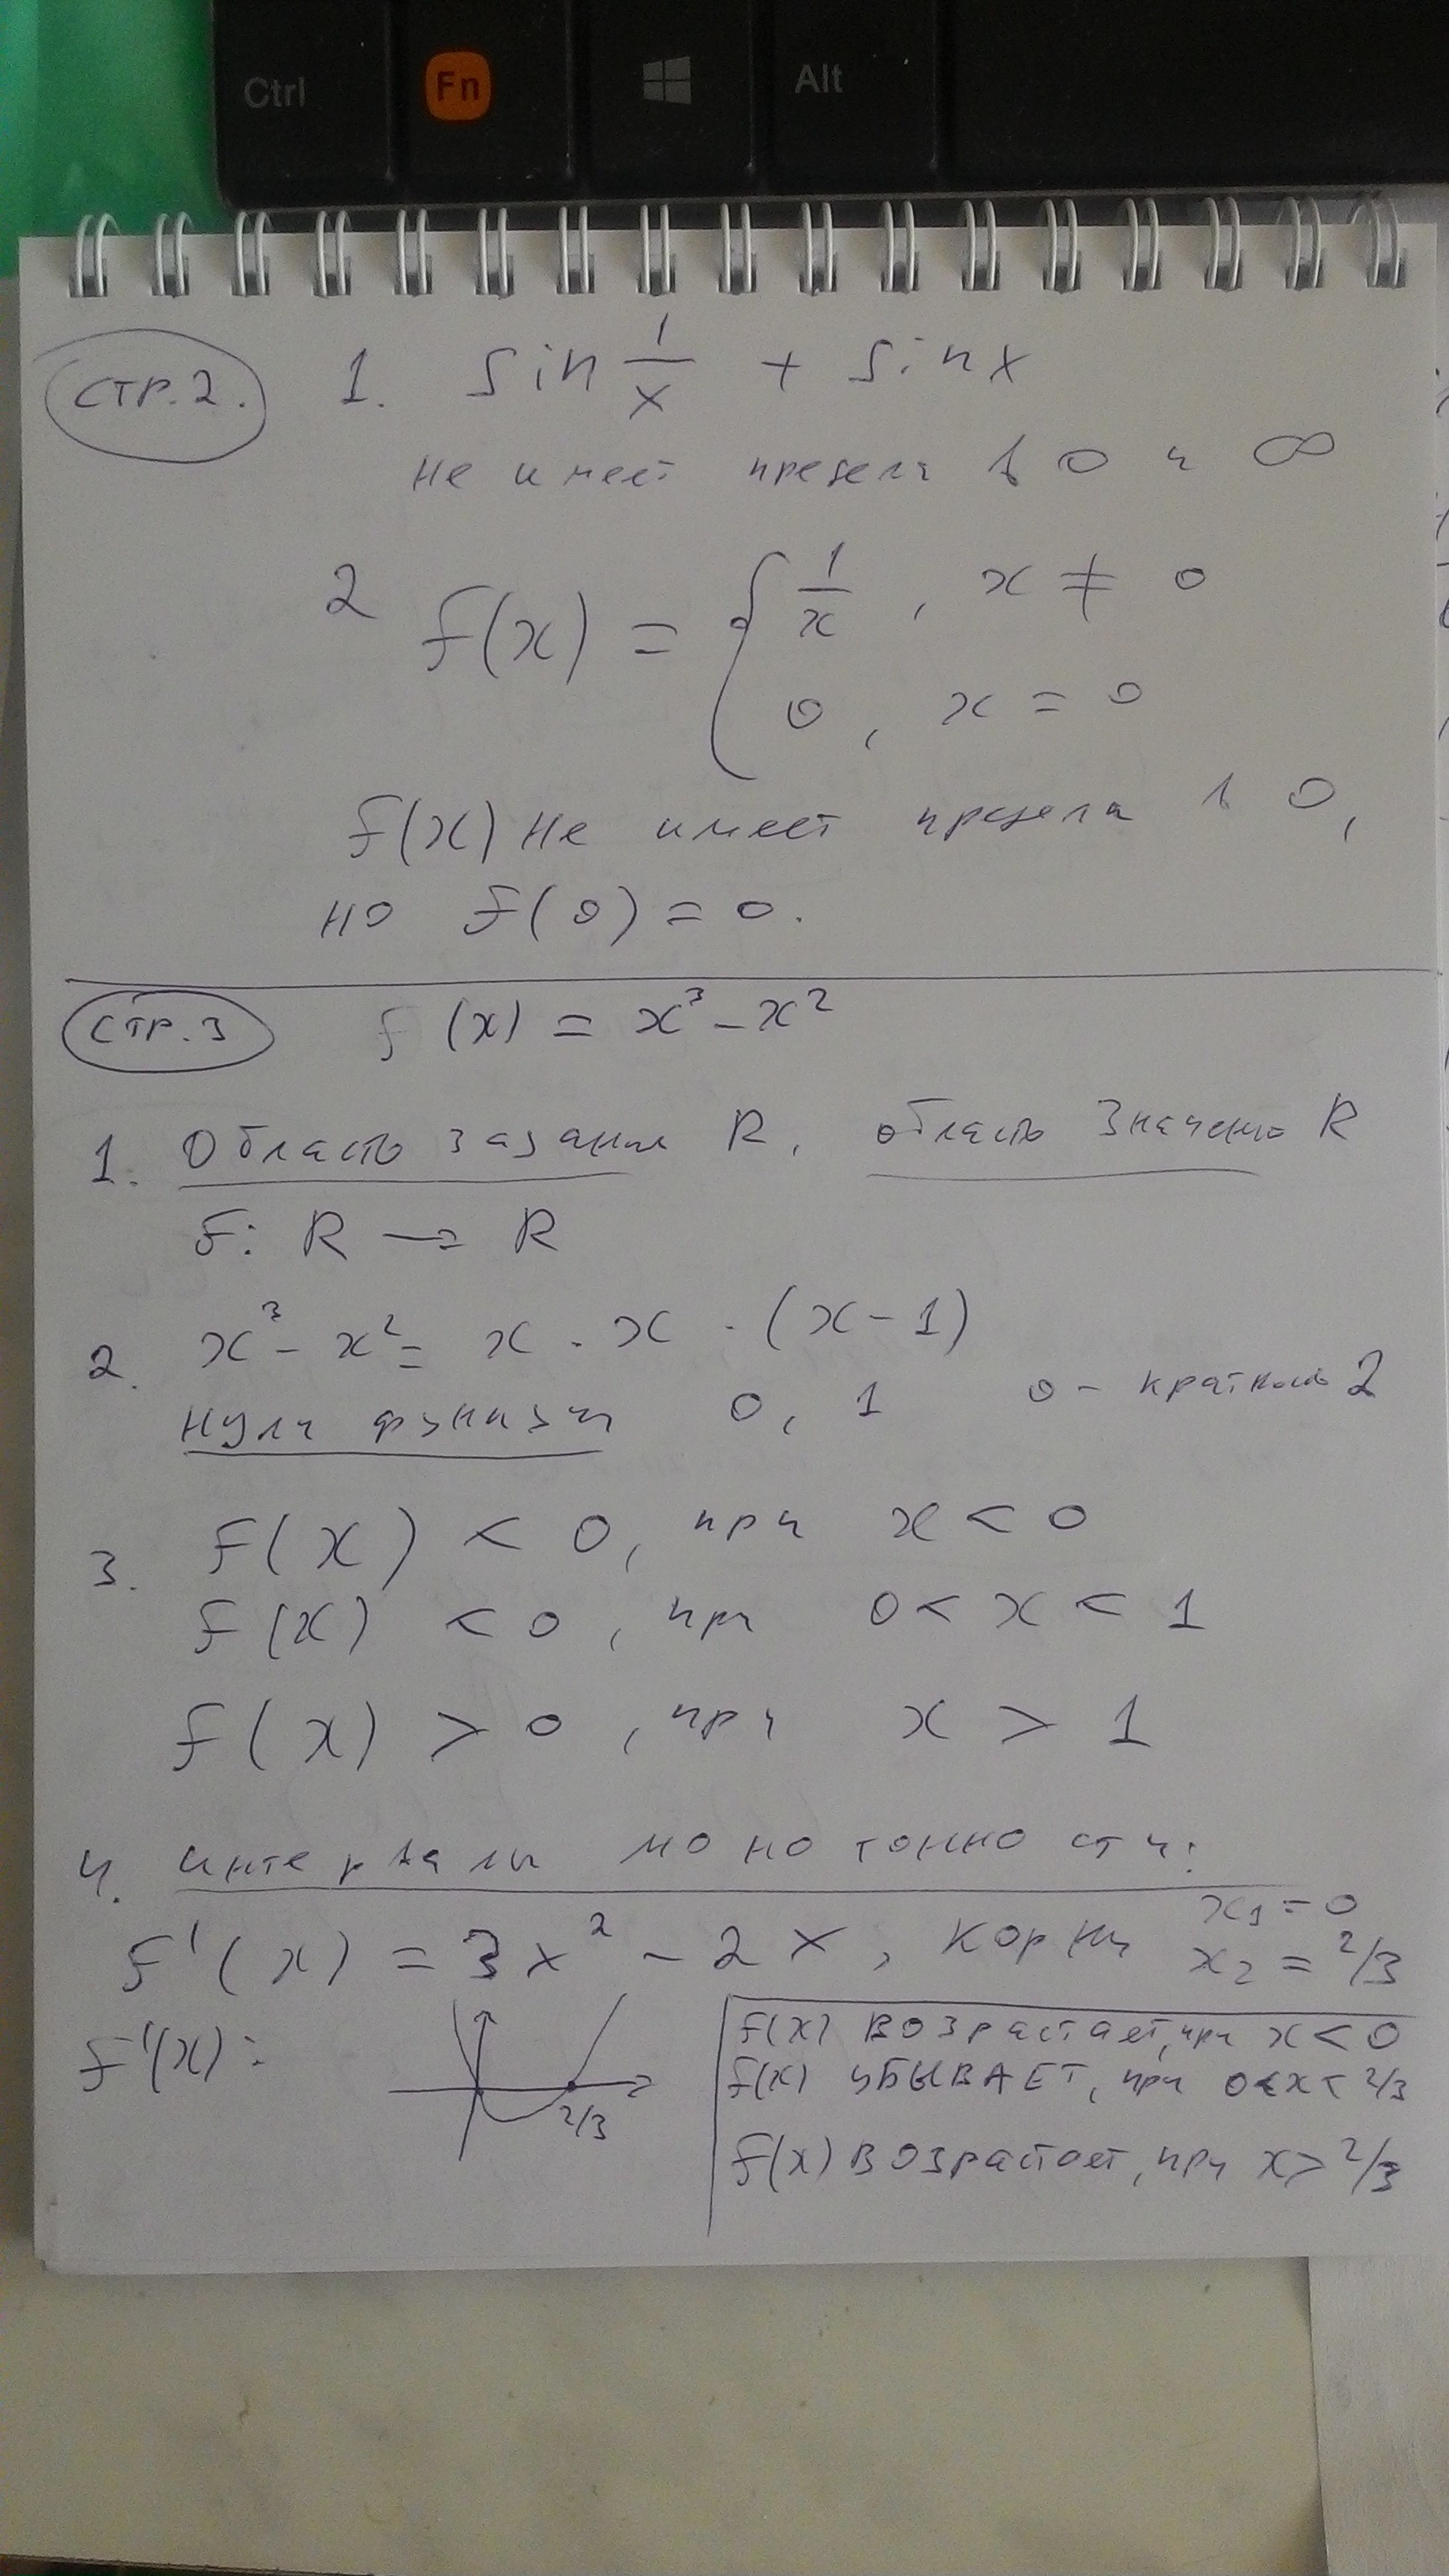 Ctrl Fn Alt
стр.2. 1. sin 1/x + sin x
не имеет предела в 0 и ∞
2 f(x) = { 1/x , x ≠ 0
0 , x = 0
f(x) не имеет предела в 0,
но f(0) = 0.
стр.3 f(x) = x³ - x²
1. Область задания R, область значений R
f: R → R
2. x³ - x² = x · x · (x - 1)
нули функции 0, 1 0 - кратность 2
3. f(x) < 0, при x < 0
f(x) < 0, при 0 < x < 1
f(x) > 0, при x > 1
4. интервалы монотонности:
f'(x) = 3x² - 2x, корни x₁ = 0
x₂ = 2/3
f'(x):
2/3
f(x) возрастает, при x < 0
f(x) УБЫВАЕТ, при 0 < x < 2/3
f(x) возрастает, при x > 2/3